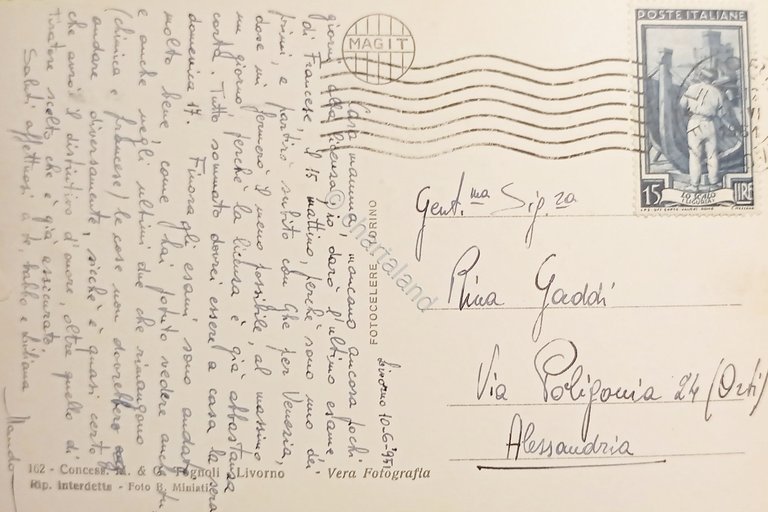 Livorno 10-6-'951
Cara mamma, mancano ancora pochi
giorni alla licenza. Io darò l'ultimo esame,
di Francese, il 15 mattino, perché sono uno dei
primi, e partirò subito con Ghe per Venezia,
dove mi fermerò il meno possibile, al massimo
un giorno perché la licenza è già abbastanza
corta. Tutto sommato dovrei essere a casa la sera
domenica 17. Finora gli esami sono andati
molto bene, come hai potuto vedere anche tu
e anche negli ultimi due che rimangono
(chimica e francese) le cose non dovrebbero
andare diversamente, sicché è quasi certo
che avrò il distintivo d'onore, oltre quello di
Tiratore scelto che è già assicurato.
Saluti affettuosi a te babbo e Liliana
Nando
MAGIT
POSTE ITALIANE
15 LIRE
LO SCALO
(LIGURIA)
Gent.ma Sig.ra
Rina Gaddi
Via Poligonia 24 (Orti)
Alessandria
FOTOCELERE TORINO
© chartaland
162 - Concess. & Livorno
Vera Fotografia
Rip. interdetta - Foto B. Miniati